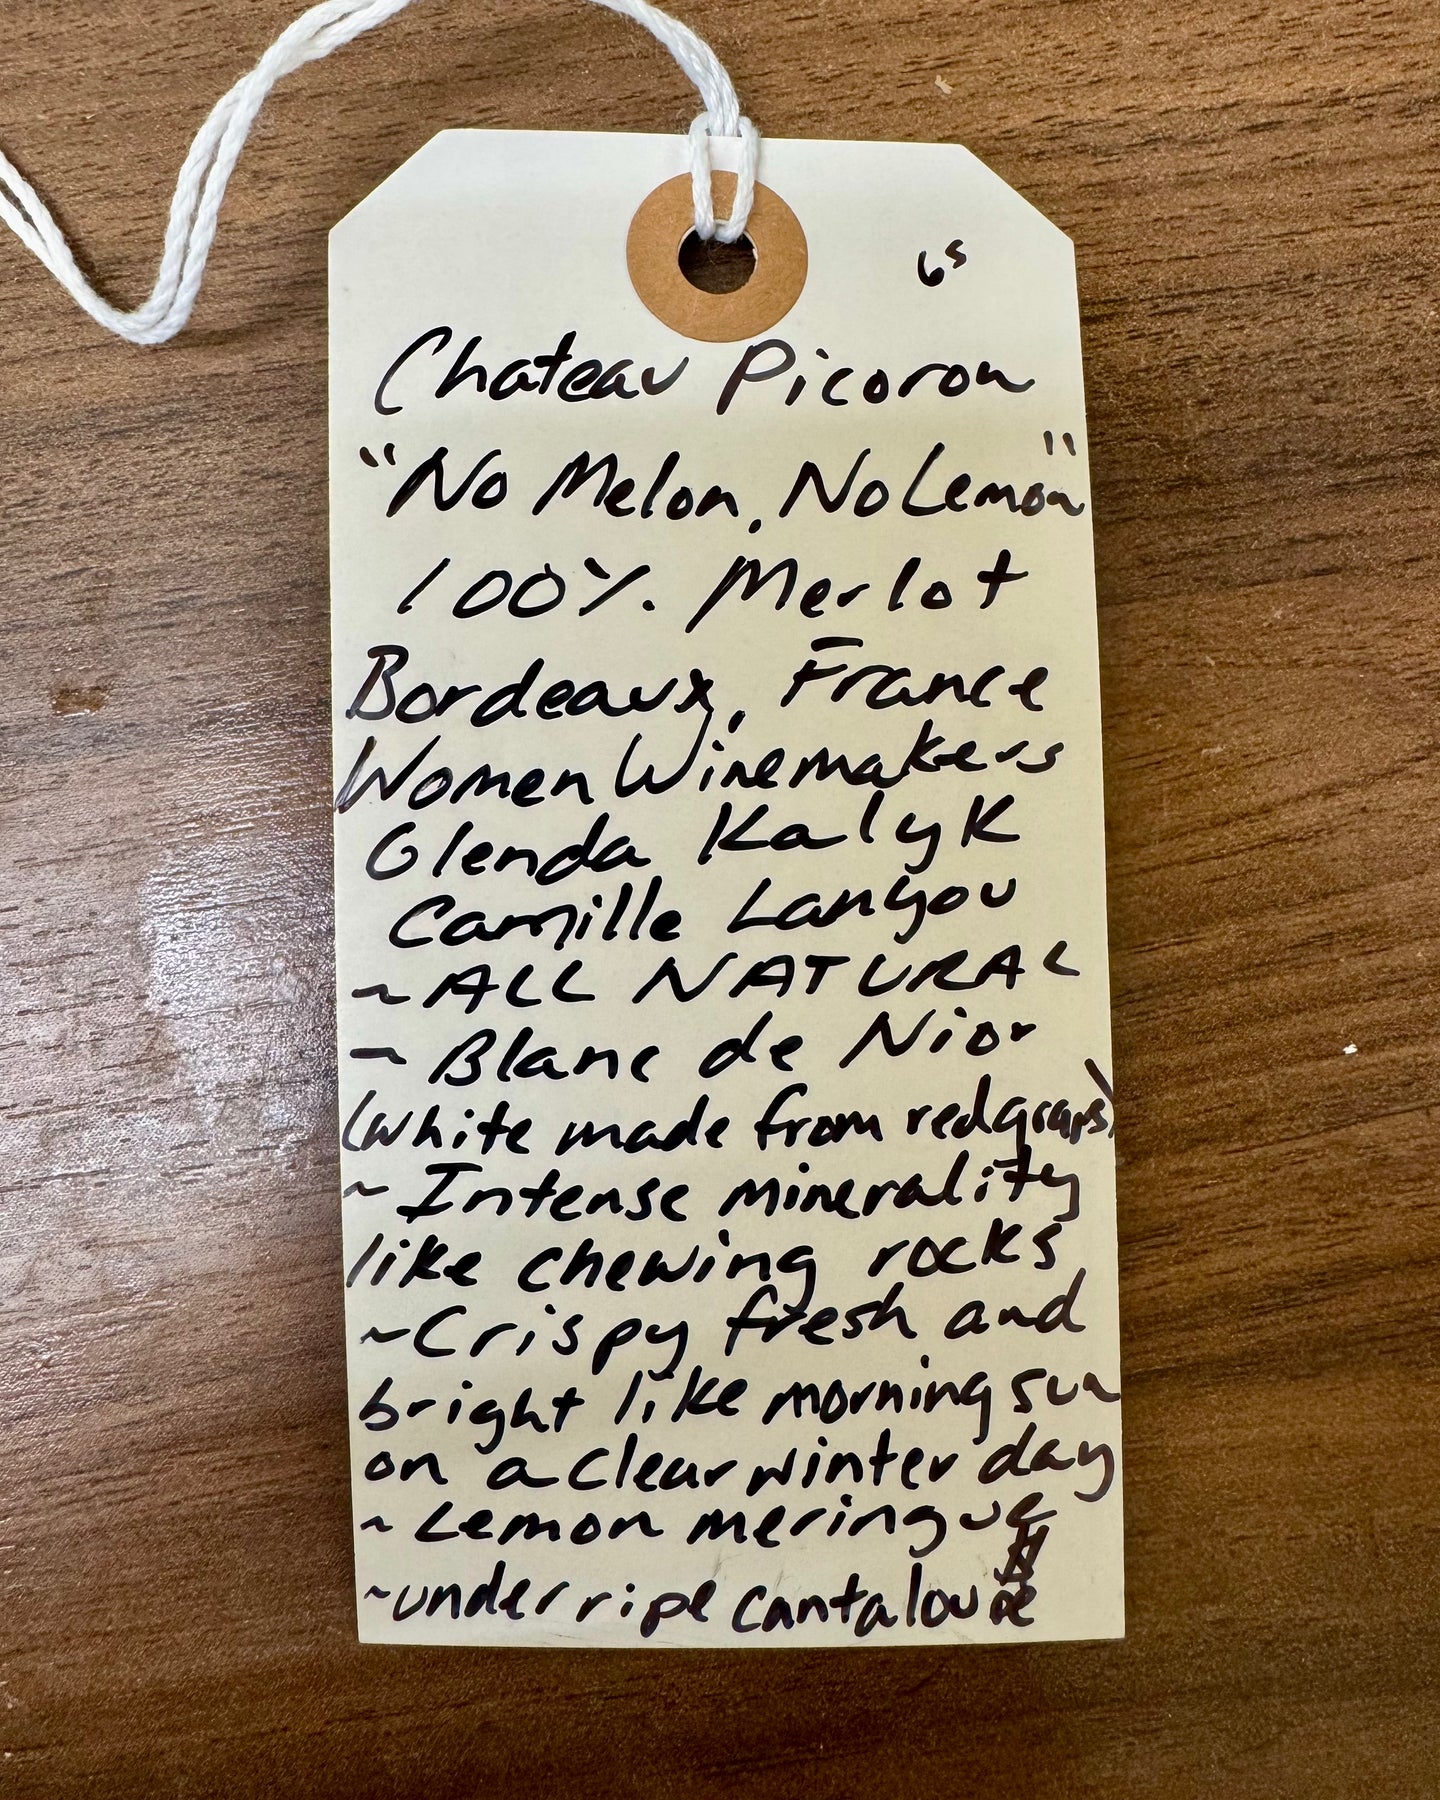 6s
Chateau Picoron
"No Melon, No Lemon"
100% Merlot
Bordeaux, France
Women Winemakers
Glenda Kalyk
Camille Lanyou
~ALL NATURAL
~ Blanc de Nior
(white made from red graps)
~ Intense minerality
like chewing rocks
~Crispy fresh and
bright like morning sun
on a clear winter day
~ Lemon meringue
~under ripe cantaloupe